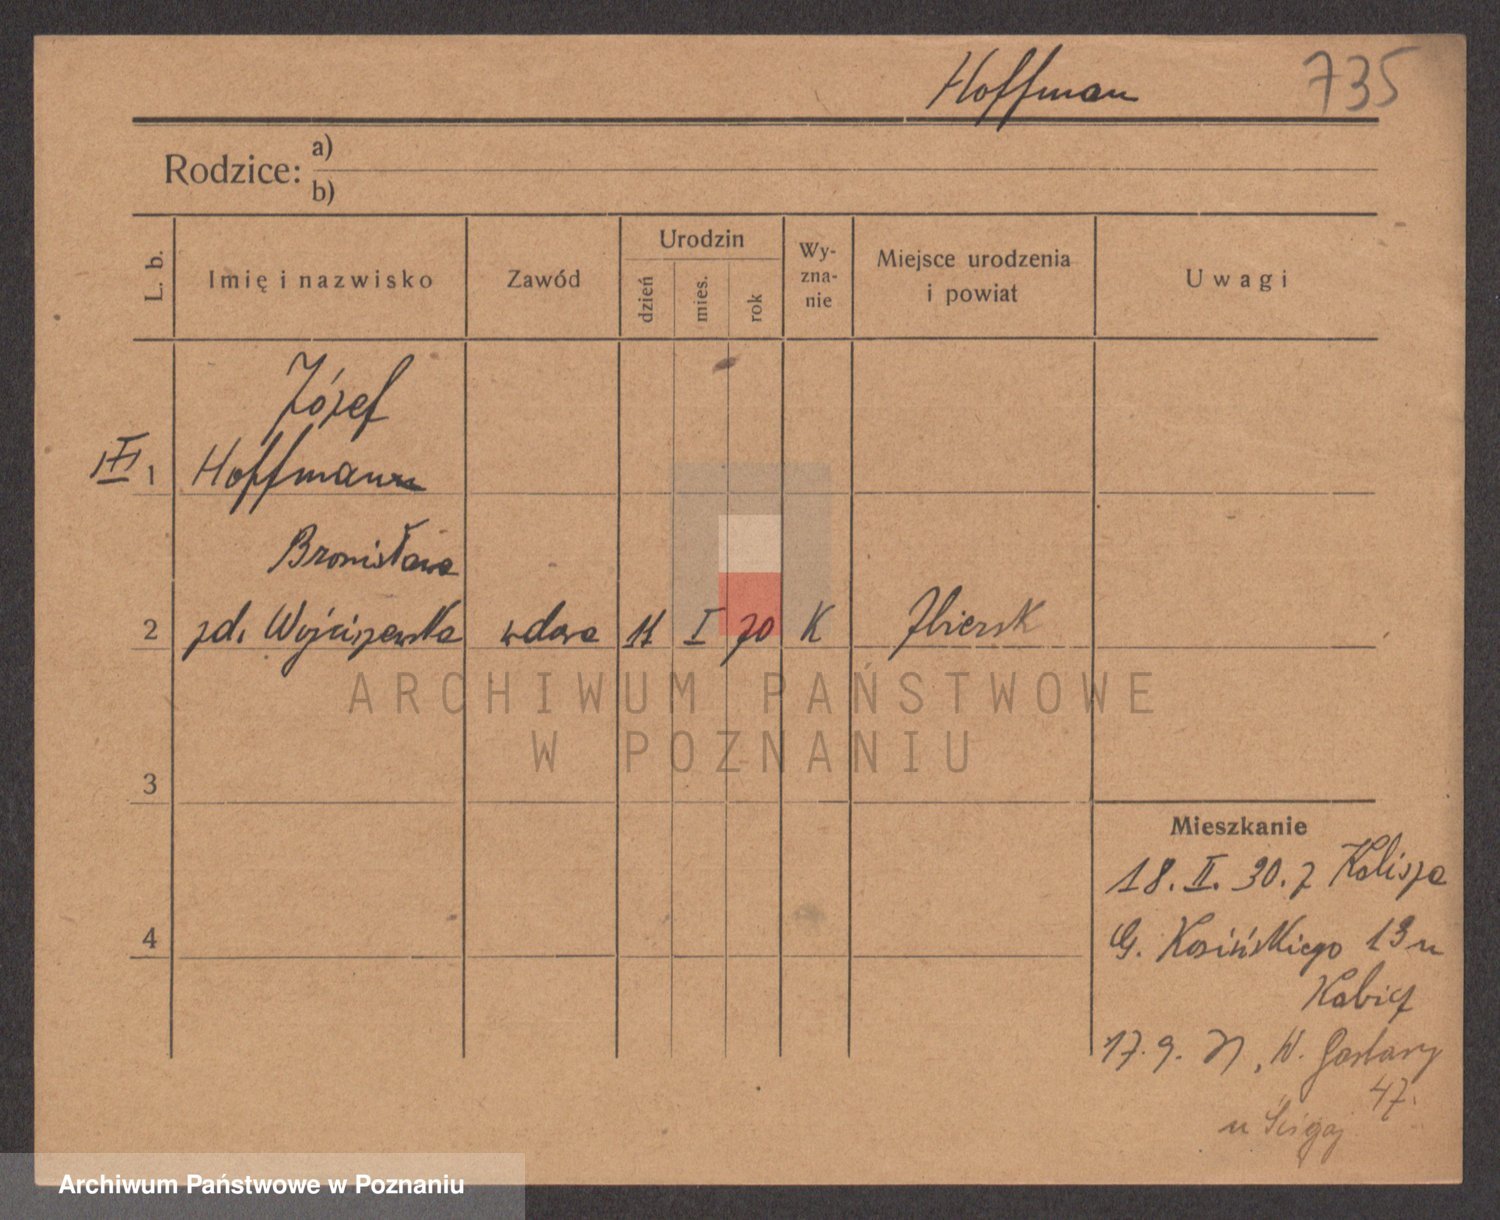 Hoffman 735
Rodzice: a)
b)
L. b.
Imię i nazwisko
Zawód
Urodzin
dzień
mies.
rok
Wy-
zna-
nie
Miejsce urodzenia
i powiat
Uwagi
Józef
III 1 Hoffmann
Bronisława
2 zd. Wojciszewska wdowa 11 I 70 K Zbiersk
3
4
Mieszkanie
18. II. 30. z Kalisza
G. Kosińskiego 13 u
Kabicz
17. 9. W.
47.
u
ARCHIWUM PAŃSTWOWE
W POZNANIU
Archiwum Państwowe w Poznaniu